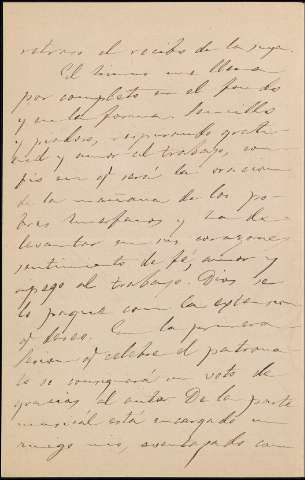 retraso el recibo de la suya.
El himno me llena
por completo en el fondo
y en la forma. Sencillo
y piadoso, respirando grati-
tud y amor al trabajo, con-
fío en q. será la oracion
de la mañana de los po-
bres huérfanos y ha de
levantar en sus corazones
sentimientos de fé, amor y
apego al trabajo. Dios se
lo pague con la extension
q. deseo. En la primera
sesion q. celebre el patrona-
to se consignará un voto de
gracias al autor. De la parte
musical está encargado un
amigo mio, aventajado com